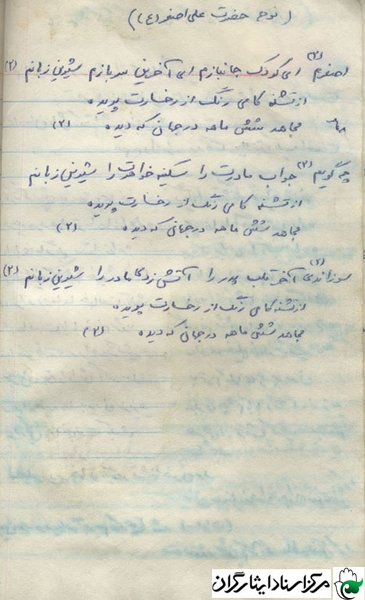 (نوحه حضرت علی اصغر (ع))
اصغرم (۲) ای کودک جانبازم ای آخرین سربازم شیرین زبانم (۲)
از تشنه کامی رنگ از رخسارت پریده
مجاهد شش ماهه در جهان که دیده (۲)
چه گویم (۲) جواب مادرت را سکینه خواهرت را شیرین زبانم
از تشنه کامی رنگ از رخسارت پریده
مجاهد شش ماهه در جهان که دیده (۲)
سوزاندی (۲) آخر قلب پدر را آتش زدی مادر را شیرین زبانم (۲)
از تشنه کامی رنگ از رخسارت پریده
مجاهد شش ماهه در جهان که دیده (۲)
مرکز اسناد ایثارگران